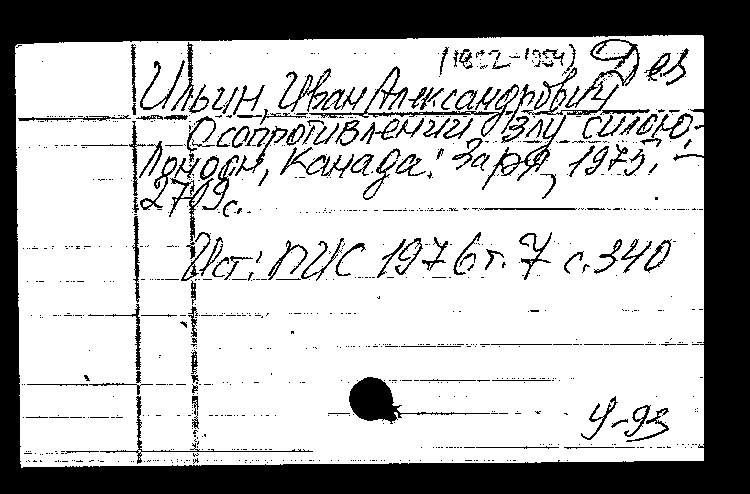 (1882-1954) Дез
Ильин, Иван Александрович
О сопротивлении злу силою,-
Лондон, Канада: Заря, 1975. –
с.
Ист: ПИК 1976 т. 7 с. 340